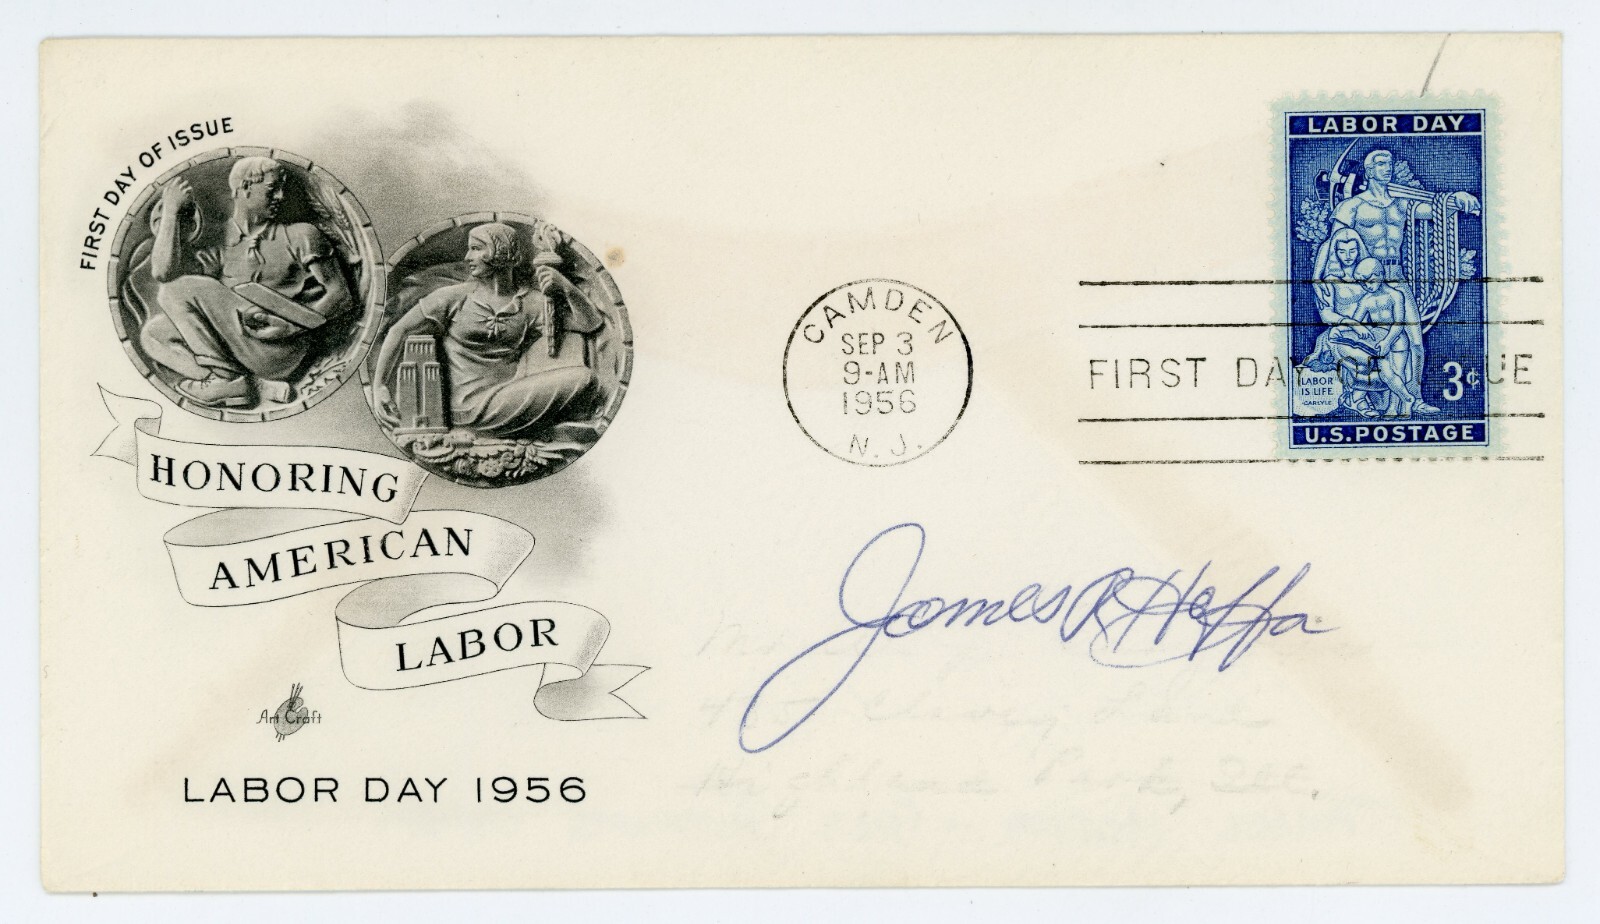 FIRST DAY OF ISSUE
HONORING
AMERICAN
LABOR
Art Craft
LABOR DAY 1956
CAMDEN
SEP 3
9-AM
1956
N. J.
FIRST DAY OF ISSUE
LABOR DAY
LABOR
IS LIFE
CARLYLE
3¢
U.S. POSTAGE
James R Hoffa
Lane
Highland Park, Ill.